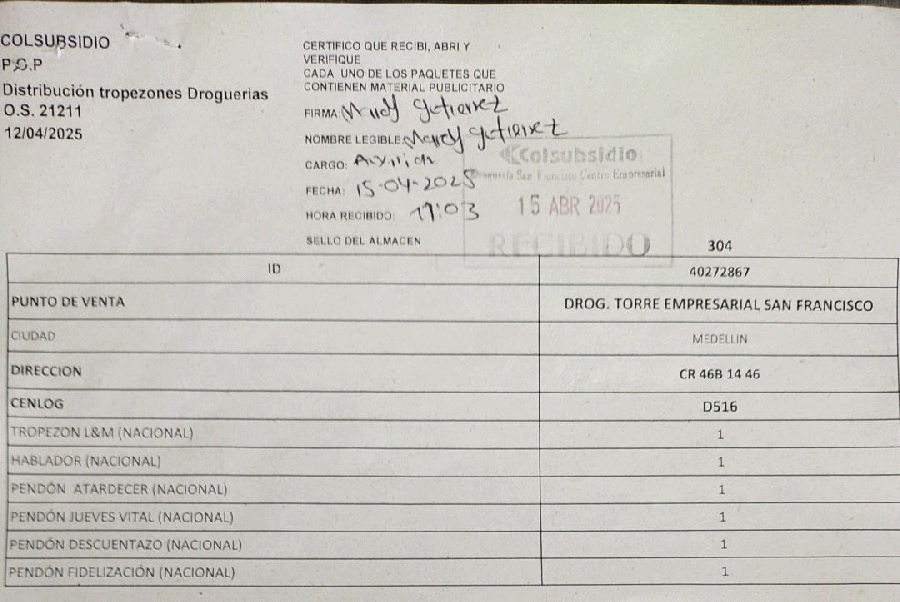 COLSUBSIDIO
P.O.P
Distribución tropezones Droguerias
O.S. 21211
12/04/2025
CERTIFICO QUE RECIBI, ABRI Y
VERIFIQUE
CADA UNO DE LOS PAQUETES QUE
CONTIENEN MATERIAL PUBLICITARIO
FIRMA: Gutierrez
NOMBRE LEGIBLE: Gutierrez
CARGO: Auxiliar
FECHA: 15-04-2025
HORA RECIBIDO: 11:03
SELLO DEL ALMACEN
Colsubsidio
Droguería San Francisco Centro Empresarial
15 ABR 2025
RECIBIDO
304
ID 40272867
PUNTO DE VENTA DROG. TORRE EMPRESARIAL SAN FRANCISCO
CIUDAD MEDELLIN
DIRECCION CR 46B 14 46
CENLOG D516
TROPEZON L&M (NACIONAL) 1
HABLADOR (NACIONAL) 1
PENDÓN ATARDECER (NACIONAL) 1
PENDÓN JUEVES VITAL (NACIONAL) 1
PENDÓN DESCUENTAZO (NACIONAL) 1
PENDÓN FIDELIZACIÓN (NACIONAL) 1